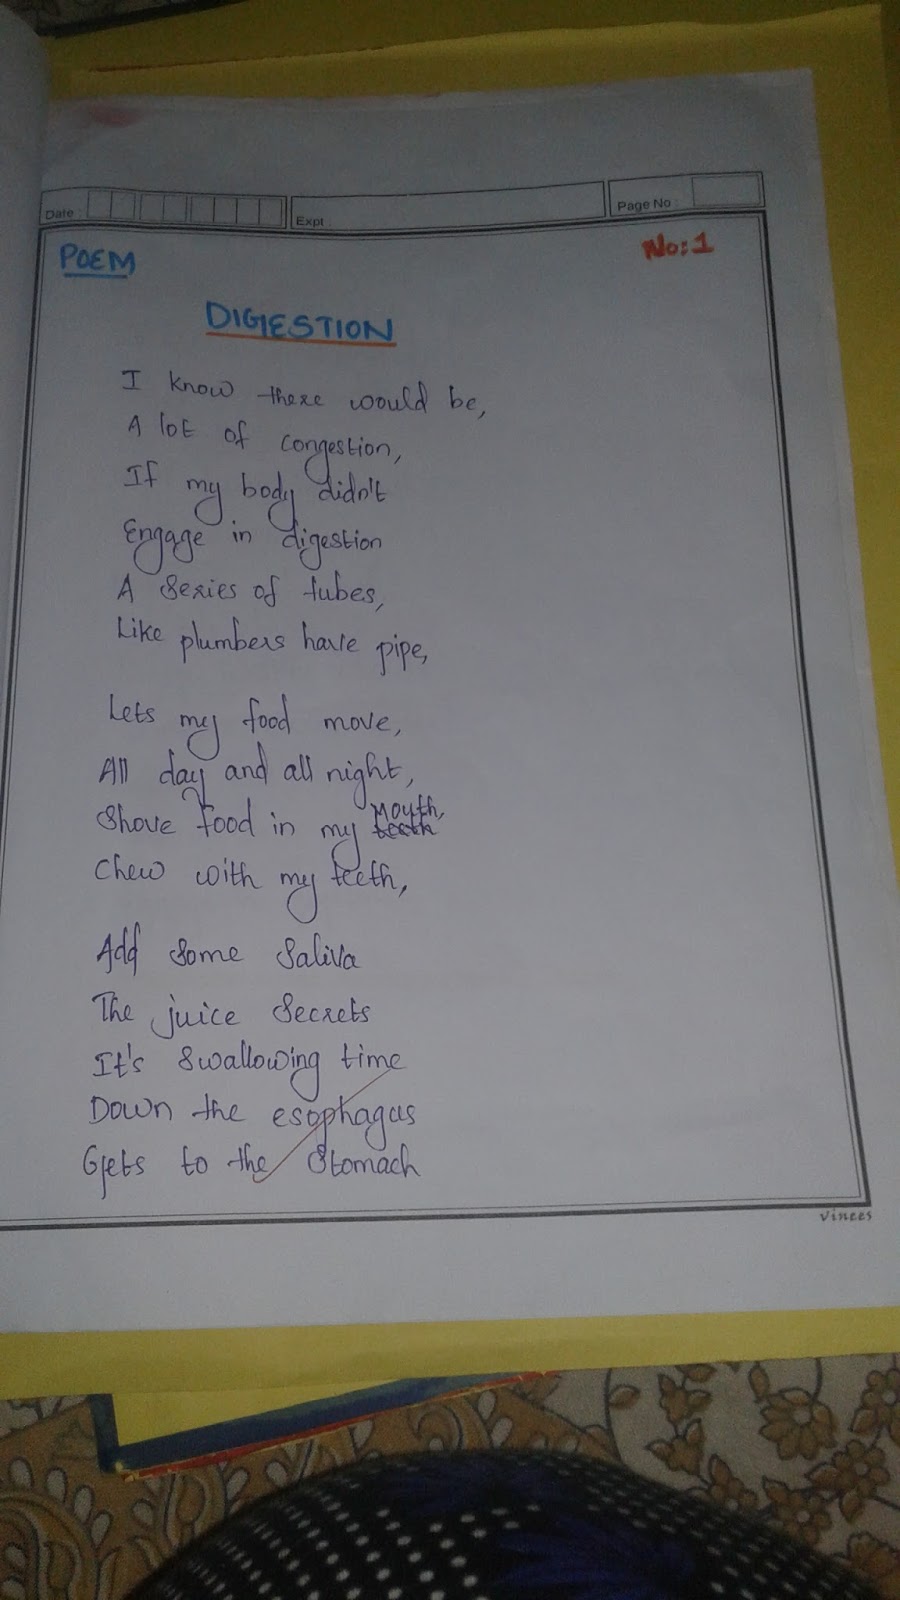 Date Expt Page No :
POEM No:1
DIGESTION
I know there would be,
A lot of congestion,
If my body didn't
Engage in digestion
A series of tubes,
Like plumbers have pipe,
Lets my food move,
All day and all night,
Shove food in my teeth mouth,
Chew with my teeth,
Add some saliva
The juice secrets
It's swallowing time
Down the esophagus
Gets to the stomach
Vinees